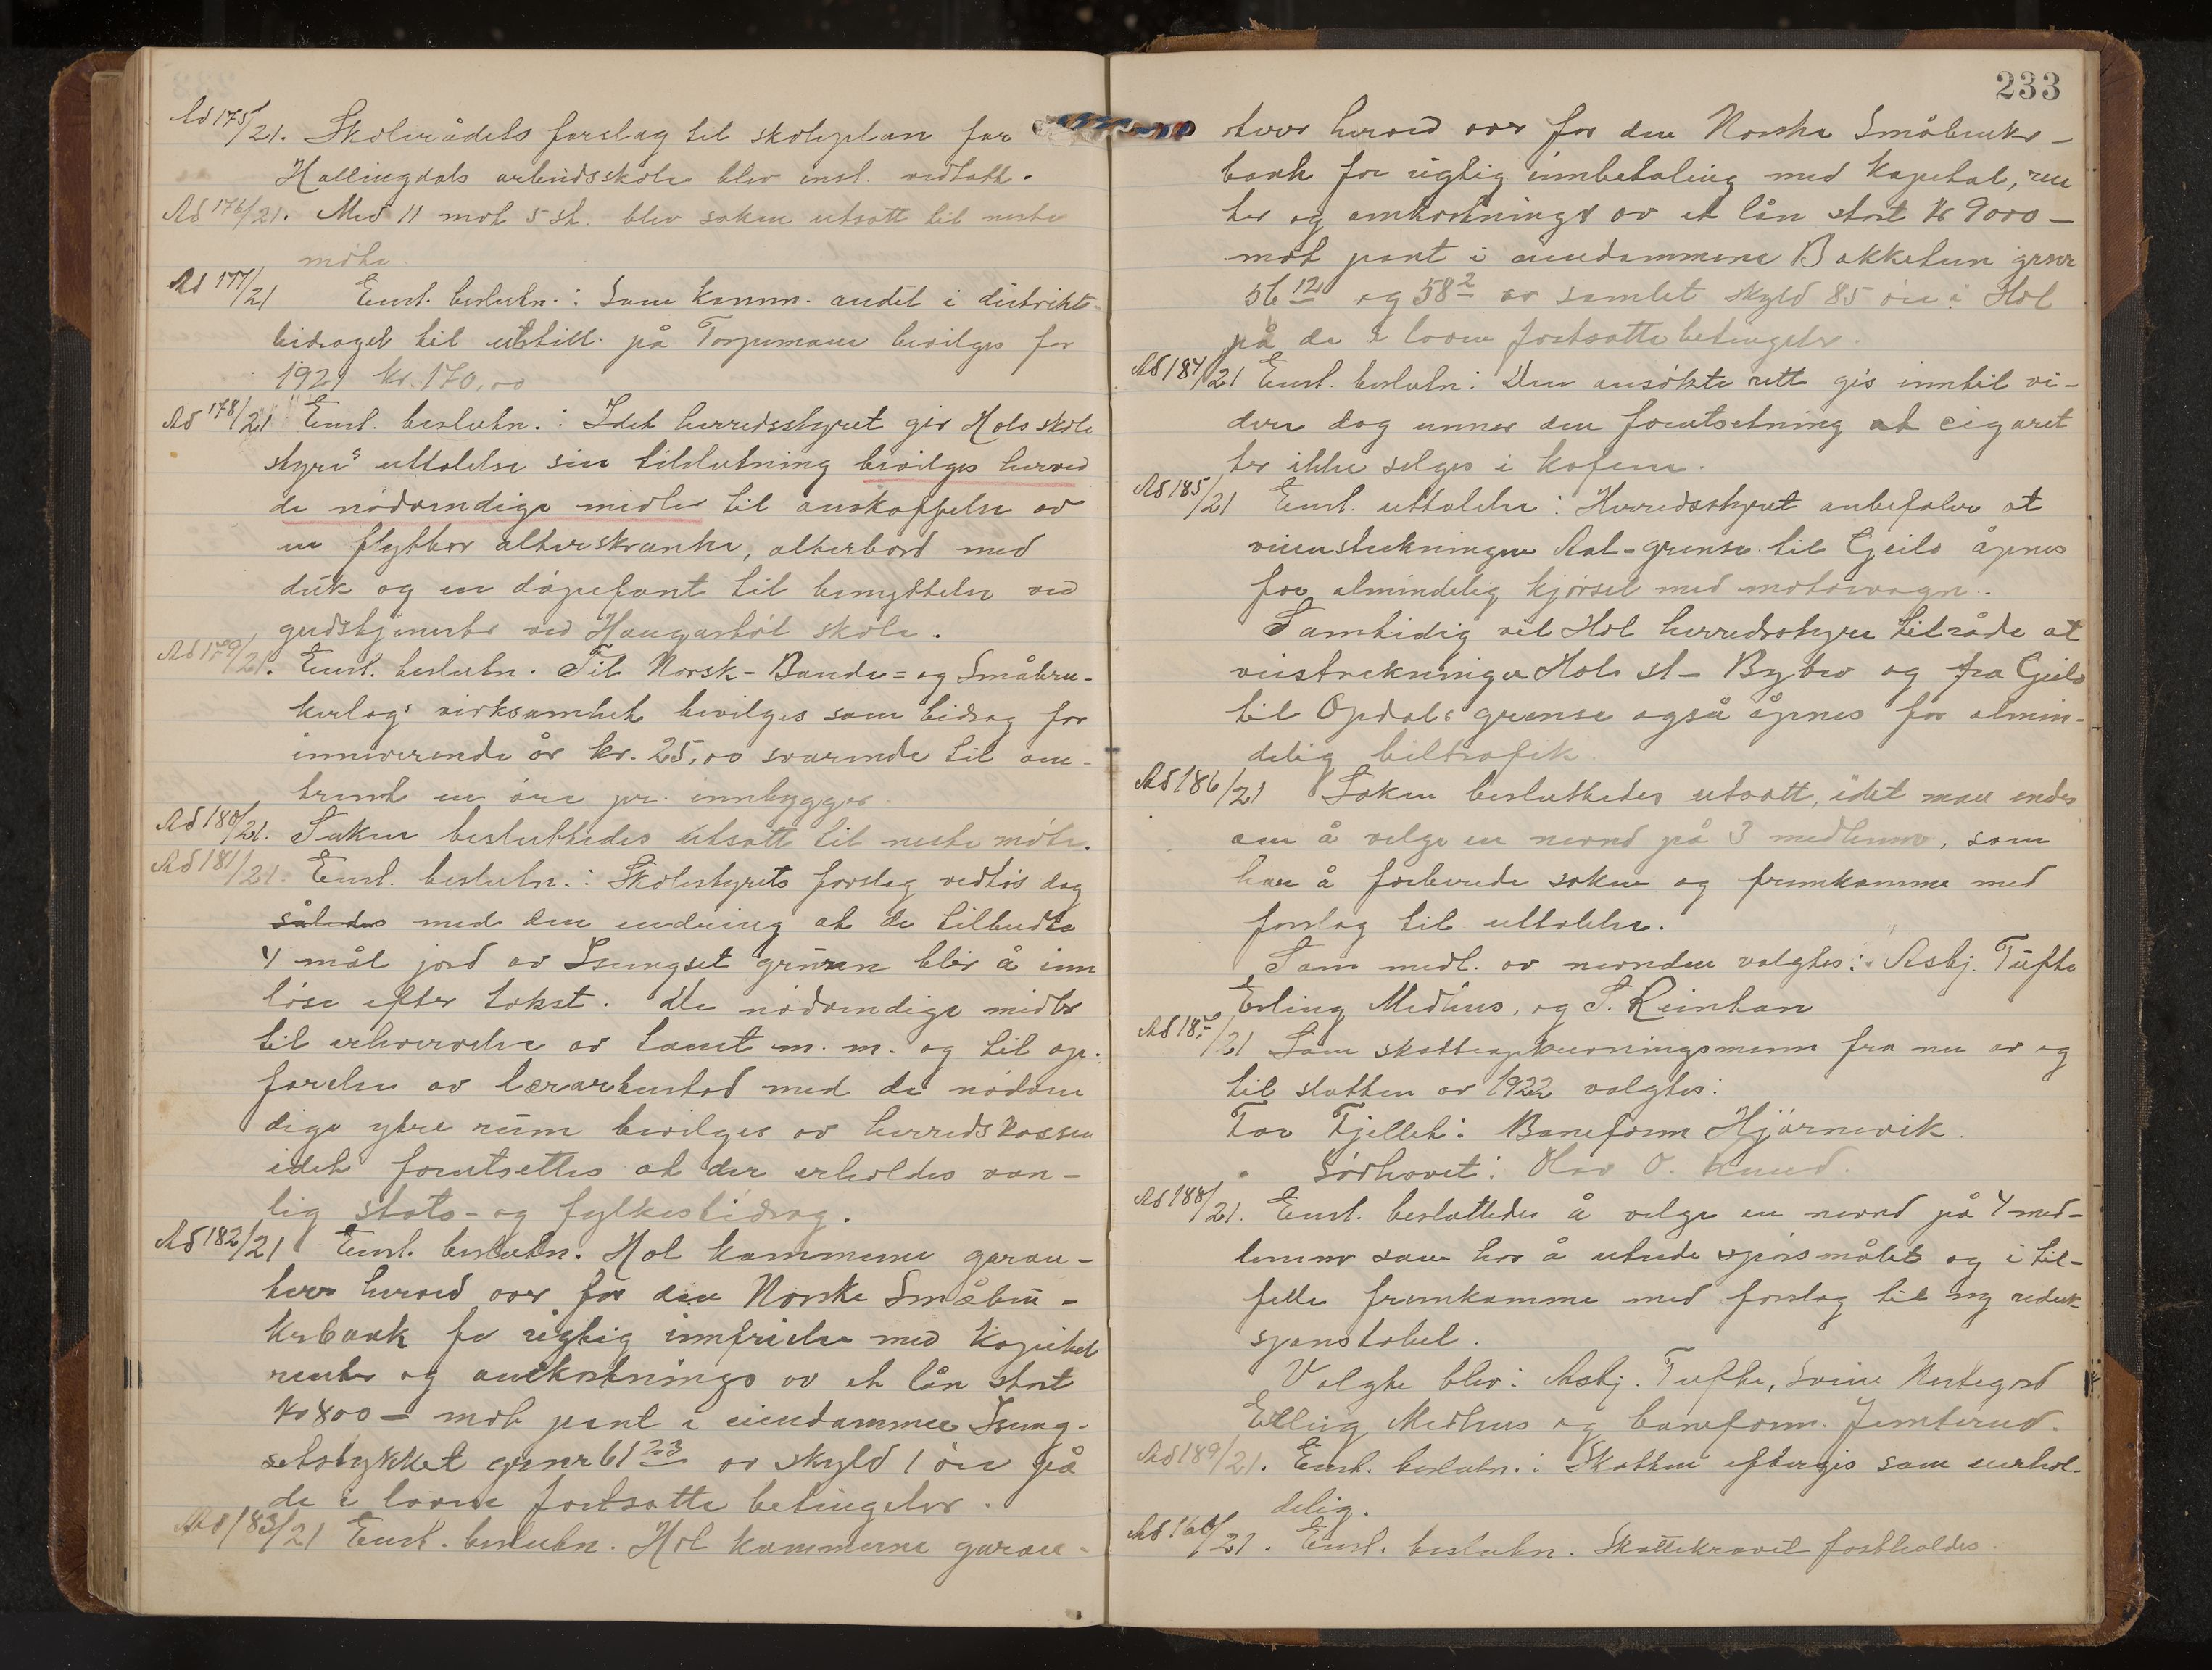 Ad 175/21. Skolerådets forslag til skoleplan for
Hallingdals arbeidsskole blev enst. vedtatt.
Ad 176/21. Med 11 mot 5 st. blev saken utsatt til neste
møte.
Ad 177/21 Enst. beslutn.: Som komm. andel i distrikts-
bidraget til utstill. på Torpumoen bevilges for
1921 kr. 170,00
Ad 178/21 Enst. beslutn.: Idet herredsstyret gir Hols skole
styres uttalelse sin tilslutning bevilges herved
de nødvendige midler til anskaffelse av
en flytbar alterskranke, alterbord med
duk og en døpefont til benyttelse ved
gudstjenester ved Haugastøl skole.
Ad 179/21. Enst. beslutn. Til Norsk-Bonde= og Småbru-
kerlags virksomhet bevilges som bidrag for
inneværende år kr. 25,00 svarende til om-
trent en øre pr. innbygger.
Ad 180/21. Saken besluttedes utsatt til neste møte.
Ad 181/21. Enst. beslutn.: Skolestyrets forslag vedtas dog
således med den endring at de tilbudte
4 mål jord av Isungset grunn blir å inn
løse efter takst. De nødvendige midler
til erhvervelse av tomt m. m. og til op-
førelse av lærarbustad med de nødven
dige ytre rum bevilges av herredskassen
idet forutsettes at der erholdes van-
lig stats- og fylkesbidrag.
Ad 182/21 Enst. beslutn. Hol kommune garan-
terer herved over for den Norske Småbru-
kerbank for rigtig innfrielse med kapital
renter og omkostninger av et lån stort
kr 800 – mot pant i eiendommen Isung-
setstykket grnr 61 23 av skyld 1 øre på
de i loven fortsatte betingelser.
Ad 183/21 Enst. beslutn. Hol kommune garan-
233
terer herved over for den Norske Småbruker-
bank for rigtig innbetaling med kapital, ren
ter og omkostninger av et lån stort kr 9000 –
mot pant i eiendommene Bakketun grnr
56 12 og 58 2 av samlet skyld 85 øre i Hol
på de i loven fortsatte betingelser.
Ad 184/21 Enst. beslutn: Den ansøkte rett gis inntil vi-
dere dog unner den forutsetning at cigaret
ter ikke selges i kafeen.
Ad 185/21 Enst. uttalelse: Herredsstyret anbefaler at
veienstrekningen Aal-grense til Geilo åpnes
for almindelig kjørsel med motorvogn.
Samtidig vil Hol herredsstyre tilråde at
veistrekningen Hol st – Bybro og fra Geilo
til Opdals grense også åpnes for almin-
delig biltrafik.
Ad 186/21 Saken besluttedes utsatt, idet man enes
om å velge en nevnd på 3 medlemer, som
har å forberede saken og fremkomme med
forslag til uttalelse.
Som medl. av nevnden valgtes: Asbj. Tufte
Erling Medhus, og S. Reinton
Ad 187/21 Som skatteopkrevningsmenn fra nu av og
til slutten av 1922 valgtes:
For Fjellet: Baneform Hjørnevik.
" Sørhovet: Olav O. Knud.
Ad 188/21. Enst. besluttedes å velge en nevnd på 4 med-
lemmer som har å utrede spørsmålet og i til-
felle fremkomme med forslag til ny reduk
sjonstabel.
Valgte blev: Asbj. Tufte, Svein Nestegard
Elling Medhus og baneform. Jemterud.
Ad 189/21. Enst. beslutn.: Skatten eftergis som uerhol-
delig.
Ad 160/21. Enst. beslutn. Skattekravet fastholdes.